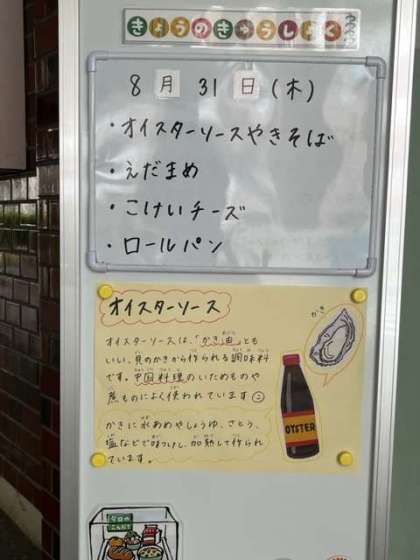 きょうのきゅうしょく
8月31日(木)
・オイスターソースやきそば
・えだまめ
・こけいチーズ
・ロールパン
オイスターソース
オイスターソースは、「かき油」とも
いい、貝のかきから作られる調味料
です。中国料理のいためものや
煮ものによく使われています
かきに水あめやしょうゆ、さとう、
塩などで味つけし、加熱して作られ
ています。
かき
OYSTER
今日の
こんだて